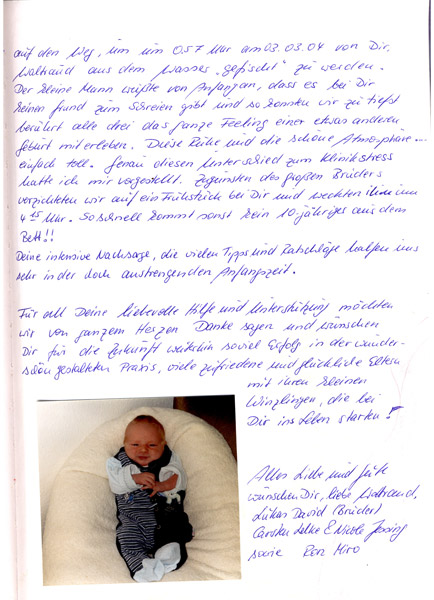 auf den Weg, um um 0.57 Uhr am 03.03.04 von Dir,
Waltraud aus dem Wasser "gefischt" zu werden.
Der kleine Mann wußte von Anfang an, dass es bei Dir
keinen Grund zum Schreien gibt und so konnten wir zutiefst
berührt alle drei das ganze Feeling einer etwas anderen
Geburt miterleben. Diese Ruhe und die schöne Atmosphäre...
einfach toll. Genau diesen Unterschied zum Klinikstress
hatte ich mir vorgestellt. Zugunsten des großen Bruders
verzichteten wir auf ein Frühstück bei Dir und weckten ihn um
4 45 Uhr. So schnell kommt sonst kein 10-jähriges aus dem
Bett!!
Deine intensive Nachsorge, die vielen Tipps und Ratschläge halfen uns
sehr in der doch anstrengenden Anfangszeit.
Für all Deine liebevolle Hilfe und Unterstützung möchten
wir von ganzem Herzen Danke sagen und wünschen
Dir für die Zukunft weiterhin soviel Erfolg in der wunder-
schön gestalteten Praxis, viele zufriedene und glückliche Eltern
mit ihren kleinen
Winzlingen, die bei
Dir ins Leben starten!
Alles Liebe und Gute
wünschen Dir, liebe Waltraud,
Lukas David (Bruder)
Carsten & Nicole
sowie Ron Miro